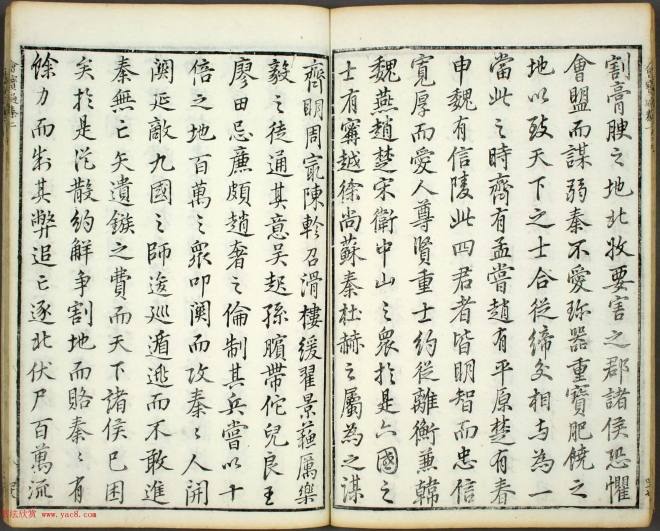 割膏腴之地北收要害之郡諸侯恐懼
會盟而謀弱秦不愛珎器重寶肥饒之
地以致天下之士合従締交相与為一
當此之時齊有孟嘗趙有平原楚有春
申魏有信陵此四君者皆明智而忠信
寛厚而愛人尊賢重士約従離衡兼韓
魏燕趙楚宋衛中山之衆於是六國之
士有甯越徐尚蘇秦杜赫之屬為之謀
齊明周㝡陳軫召滑樓緩翟景蘓厲樂
毅之徒通其意吴起孫臏帶佗兒良王
廖田忌廉頗趙奢之倫制其兵嘗以十
倍之地百萬之衆叩関而攻秦〻人開
関延敵九國之師逡廵遁逃而不敢進
秦無亡矢遺鏃之費而天下諸侯已困
矣於是従散約觧争割地而賂秦〻有
餘力而制其弊追亡逐北伏尸百萬流
www.yac8.com